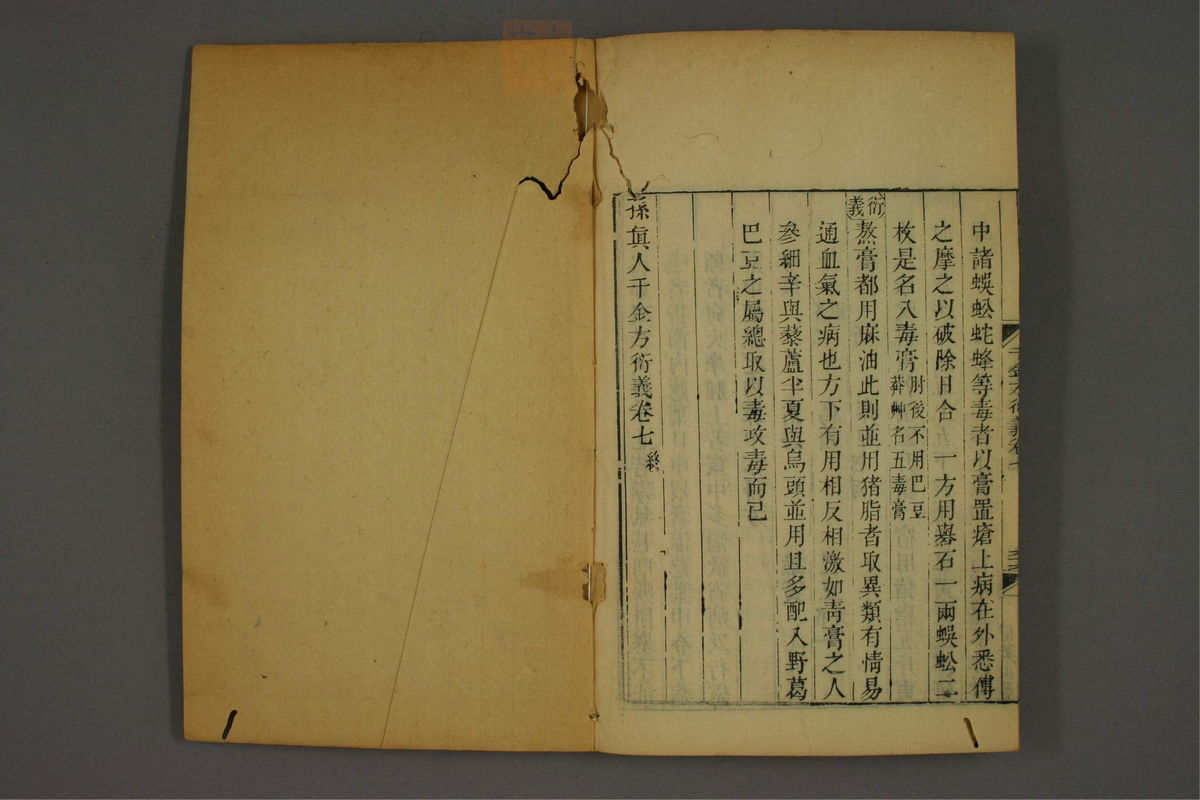 中諸蜈蚣蛇蜂等毒者以膏置瘡上病在外悉傅
之摩之以破除日合一方用礜石一兩蜈蚣二
枚是名八毒膏肘後不用巴豆
莽艸名五毒膏
衍義
熬膏都用麻油此則並用猪脂者取異類有情易
通血氣之病也方下有用相反相激如靑膏之人
參細辛與藜蘆半夏與烏頭並用且多配入野葛
巴豆之屬總取以毒攻毒而已
孫眞人千金方衍義卷七終
千金方衍義卷七